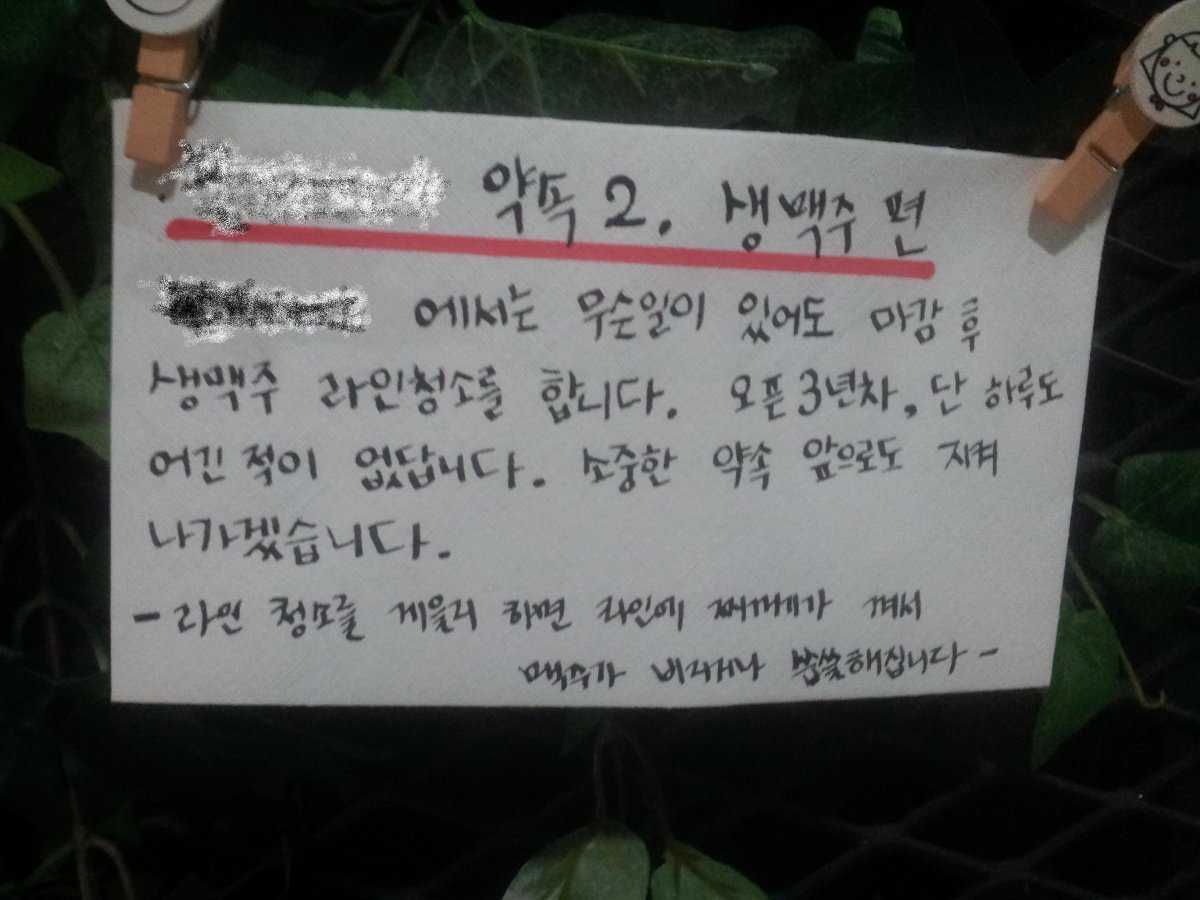 약속 2. 생맥주 편
에서는 무슨일이 있어도 마감 후
생맥주 라인청소를 합니다. 오픈 3년차, 단 하루도
어긴 적이 없답니다. 소중한 약속 앞으로도 지켜
나가겠습니다.
- 라인 청소를 게을리 하면 라인에 찌꺼기가 껴서
맥주가 비리거나 씁쓸해집니다 -